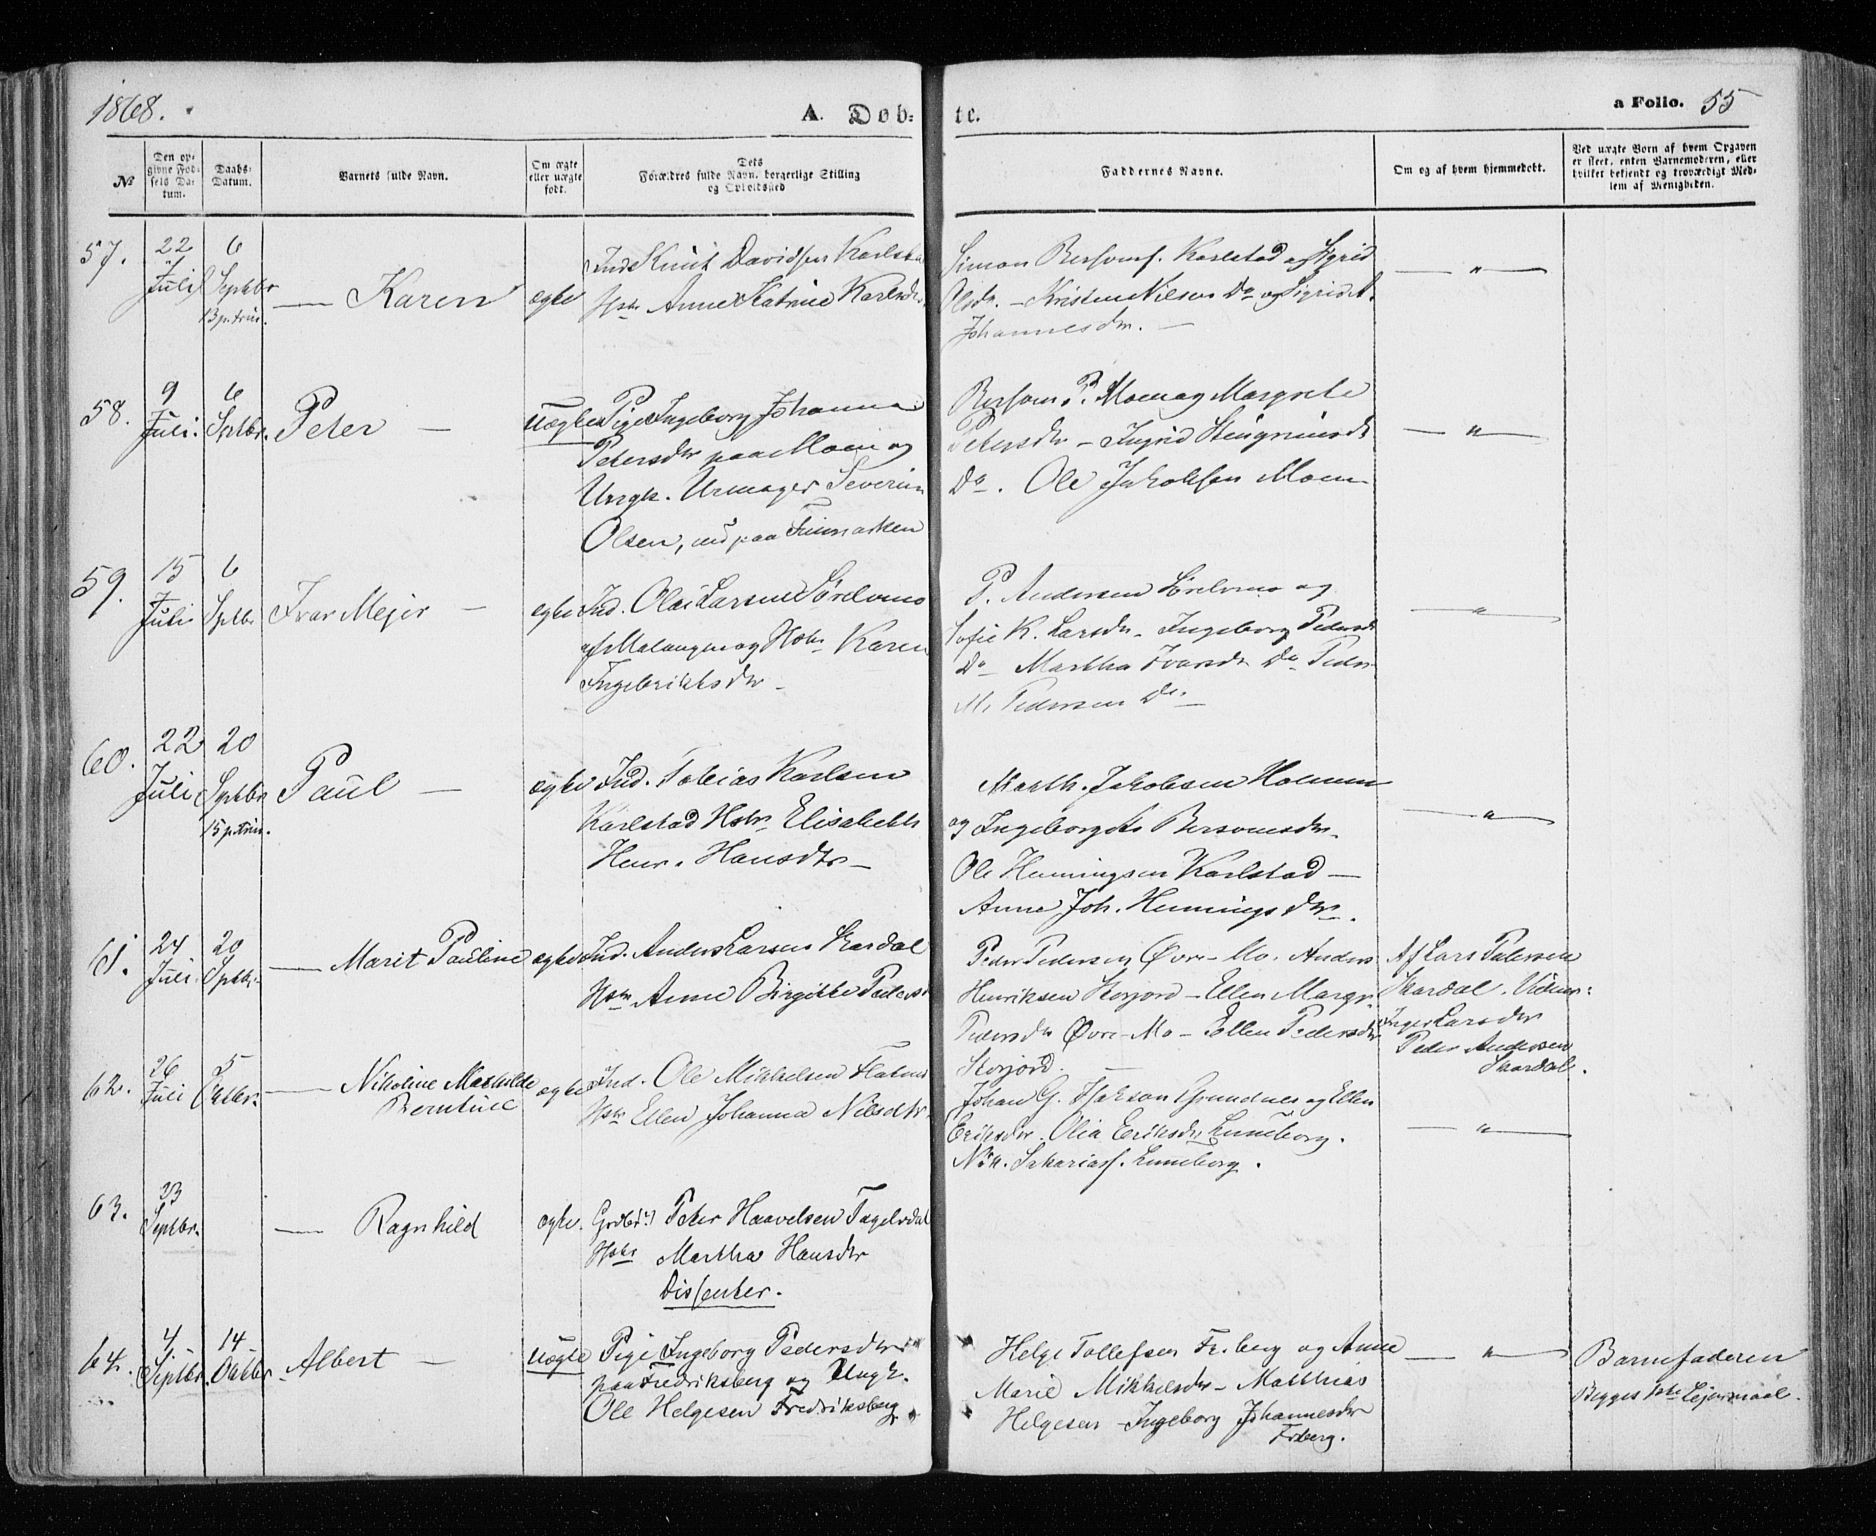 1868.
A. Døb-
te.
a Folio. 55
№
Den op-
givne Fød-
sels Da-
tum.
Daabs-
Datum.
Barnets fulde Navn.
Om ægte
eller uægte
født.
Dets
Forældres fulde Navn, borgerlige Stilling
og Opholdssted
Faddernes Navne.
Om og af hvem hjemmedøbt.
Ved uægte Børn af hvem Opgaven
er skeet, enten Barnemoderen, eller
hvilket bekjendt og troværdigt Med-
lem af Menigheden.
57. 22 Juli 6 Septbr 13 p. trin. — Karen ægte
Ind Knut Davidsen Karlstad
Hstr Anne Katrine Karlsdr.
Simon Bersvens. Karlstad og Sigrid
Olsdr. – Kristen Nilsen Do og Sigrid A.
Johannesdr. —
— " —
58. 9 Juli. 6 Sptbr. Peter — Uægte
Pige Ingeborg Johanna
Petersdr paa Moen og
Ungk. Urmager Severin
Olsen, nu paa Finmarken
Bersven P. Moen og Margrete
Petersdr – Ingrid Steingrimsdr
Do. Ole Jakobsen Moen
— " —
59. 15 Juli 6 Sptbr Ivar Mejer — ægte
Ind. Olai Larsen Sørelvmo
af Malangen og Hstr Karen
Ingebriktsdr –
P. Andersen Sørelvmo og
Sofie K. Larsdr – Ingeborg Pedersdr
Do – Martha Ivarsdr Do Peder
M. Pedersen Do –
— " —
60. 22 Juli 20 Sptbr 15 p. trin. Paul — ægte
Ind. Tobias Karlsen
Karlstad Hstr Elisabeth
Henr. Hansdr –
Marth. Jakobsen Holmen
og Ingeborg Bersvensdr.
Ole Henningsen Karlstad —
Anne Joh. Henningsdr.
— " —
61. 24 Juli 20 Sptbr. — Marit Pauline ægte
Ind. Anders Larsen Skardal
Hstr Anne Birgitte Pedersd
Peder Pedersen Øvre-Mo. Anders
Henriksen Storjord – Ellen Margr.
Pedersdr Øvre-Mo – Ellen Pedersdr
Storjord. —
Af Lars Pedersen
Skardal. Vidner:
Inger Larsdr
Peder Andersen
Skardal.
62. 26 Juli 5 Octbr. — Nikoline Mathilde
Berntine ægte
Ind. Ole Mikkelsen Fladmo
Hstr Ellen Johanna Nilsdtr.
Johan G. Isakson Grundnes og Ellen
Eriksdr. Olia Eriksdr Lunneborg.
Nik. Sakarias. Lunneborg.
— " —
63. 23 Septbr. — Ragnhild ægte.
Grdbr. Peter Haavelsen Fagelvdal
Hstr Martha Hansdr
Dissenter.
64. 4 Septbr. 14 Oktbr. Albert — Uægte
Pige Ingeborg Pedersdr
paa Fredriksberg og Ungk.
Ole Helgesen Fredriksberg
Helge Tollefsen Fr.berg og Anne
Marie Mikkelsdr – Matthias
Helgesen – Ingeborg Johannesdr
Frberg.
— " —
Barnefaderen
Begges 1ste Lejermaal.